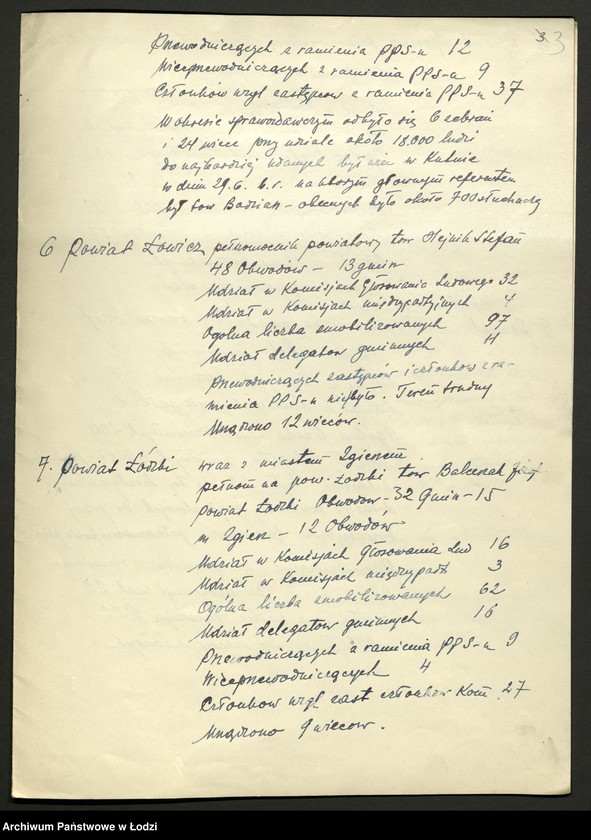 3. 3
Przewodniczących z ramienia PPS-u 12
Wiceprzewodniczących z ramienia PPS-u 9
Członków wzgl zastępców z ramienia PPS-u 37
W okresie sprawozdawczym odbyło się 6 zebrań
i 24 wiece przy udziale około 18.000 ludzi
do najbardziej udanych był wiec w Kutnie
w dniu 29.6. b.r. na którym głównym referentem
był tow Badzian - obecnych było około 700 słuchaczy
6 Powiat Łowicz pełnomocnik powiatowy tow Hejnik Stefan
48 Obwodów - 13 gmin
Udział w Komisjach Głosowania Ludowego 32
Udział w Komisjach międzypartyjnych 4
Ogólna liczba zmobilizowanych 97
Udział delegatów gminnych 11
Przewodniczących zastępców i członków z ra-
mienia PPS-u nie było. Teren trudny
Urządzono 12 wieców.
7. Powiat Łódzki wraz z miastem Zgierzem
pełnom na pow. Łódzki tow Balcerzak
powiat Łódzki Obwodów - 32 Gmin - 15
m Zgierz - 12 Obwodów
Udział w Komisjach Głosowania Lud 16
Udział w Komisjach międzypart 3
Ogólna liczba zmobilizowanych 62
Udział delegatów gminnych 16
Przewodniczących z ramienia PPS-u 9
Wiceprzewodniczących 4
Członków wzgl zast członków Kom 27
Urządzono 9 wieców.
Archiwum Państwowe w Łodzi